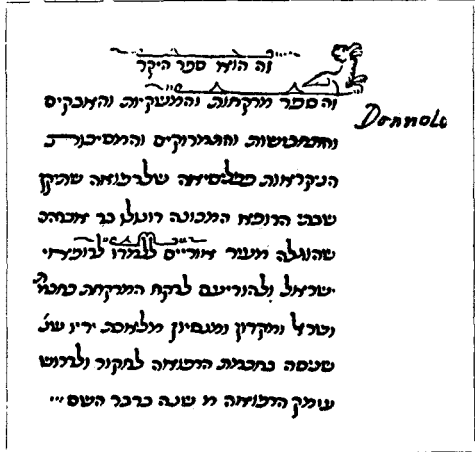 זה הוא ספר היקר
Donnolo
זה הספר מרקחות והמשקיות והאבקים
והתחבושות והתמרוקים והמסיכות
הניקראות של רפואה שתיקן
שבתי הרופא המכונה דונולו בר אברהם
שהוגלה מעיר אוריים ללמדו לרופאי
ישראל ולהודיעם לרקח המרקחת בחכמ׳
ומקדון ומנסיון מלאכת ידיו שנ׳
שניסה בחכמת הרפואה לחקור ולדרוש
עומק הרפואה מ שנה בדבר השם